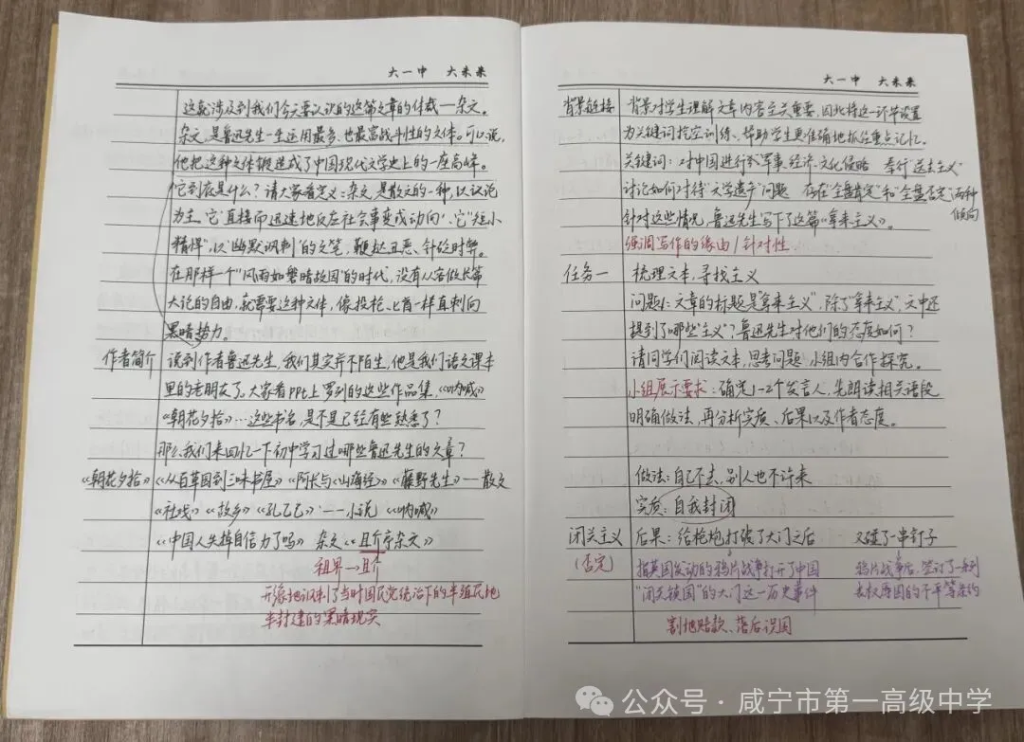 大一中 大未来
这就涉及到我们今天要认识的这篇文章的体裁—杂文。
杂文是鲁迅先生一生运用最多、也最富战斗性的文体。可以说,
他把这种文体锻造成了中国现代文学史上的一座高峰。
它到底是什么?请大家看定义:杂文,是散文的一种,以议论
为主,它"直接而迅速地反应社会事变或动向",它"短小
精悍",以"幽默讽刺"的文笔,鞭挞丑恶、针砭时弊。
在那样一个"风雨如磐暗故园"的时代,没有从容做长篇
大论的自由,就需要这种文体,像投枪、匕首一样直刺向
黑暗势力。
作者简介 说到作者鲁迅先生,我们其实并不陌生,他是我们语文课本
里的老朋友了。大家看PPt上罗列的这些作品集,《呐喊》
《朝花夕拾》…这些书名,是不是已经有些熟悉了?
那么我们来回忆一下初中学习过哪些鲁迅先生的文章?
《朝花夕拾》《从百草园到三味书屋》《阿长与《山海经》《藤野先生》—散文
《社戏》《故乡》《孔乙己》—小说 《呐喊》
《中国人失掉自信力了吗》 杂文《且介亭杂文》
租界→且介
讽刺了当时国民党统治下的半殖民地
半封建的黑暗现实
大一中 大未来
背景链接 背景对学生理解文章内容至关重要,因此将这一环节设置
为关键词挖空训练、帮助学生更准确地抓住重点记忆。
关键词:对中国进行军事、经济、文化侵略 奉行"送去主义"
讨论如何对待"文学遗产"问题 存在"全盘肯定"和"全盘否定"两种
倾向
针对这些情况,鲁迅先生写下了这篇《拿来主义》。
强调写作的缘由/针对性
任务一 梳理文本,寻找主义
问题1:文章的标题是"拿来主义",除了"拿来主义",文中还
提到了哪些"主义"?鲁迅先生对他们的态度如何?
请同学们阅读文本,思考问题,小组内合作探究。
小组展示要求:确定1-2个发言人,先朗读相关语段
明确做法,再分析实质、后果以及作者态度。
做法:自己不去,别人也不许来
实质:自我封闭
闭关主义 后果:给枪炮打破了大门之后 又碰了一串钉子
(否定) 指英国发动的鸦片战争打开了中国 鸦片战争后,签订了一系列
"闭关锁国"的大门这一历史事件 丧权辱国的不平等条约
割地赔款、落后误国
公众号·咸宁市第一高级中学